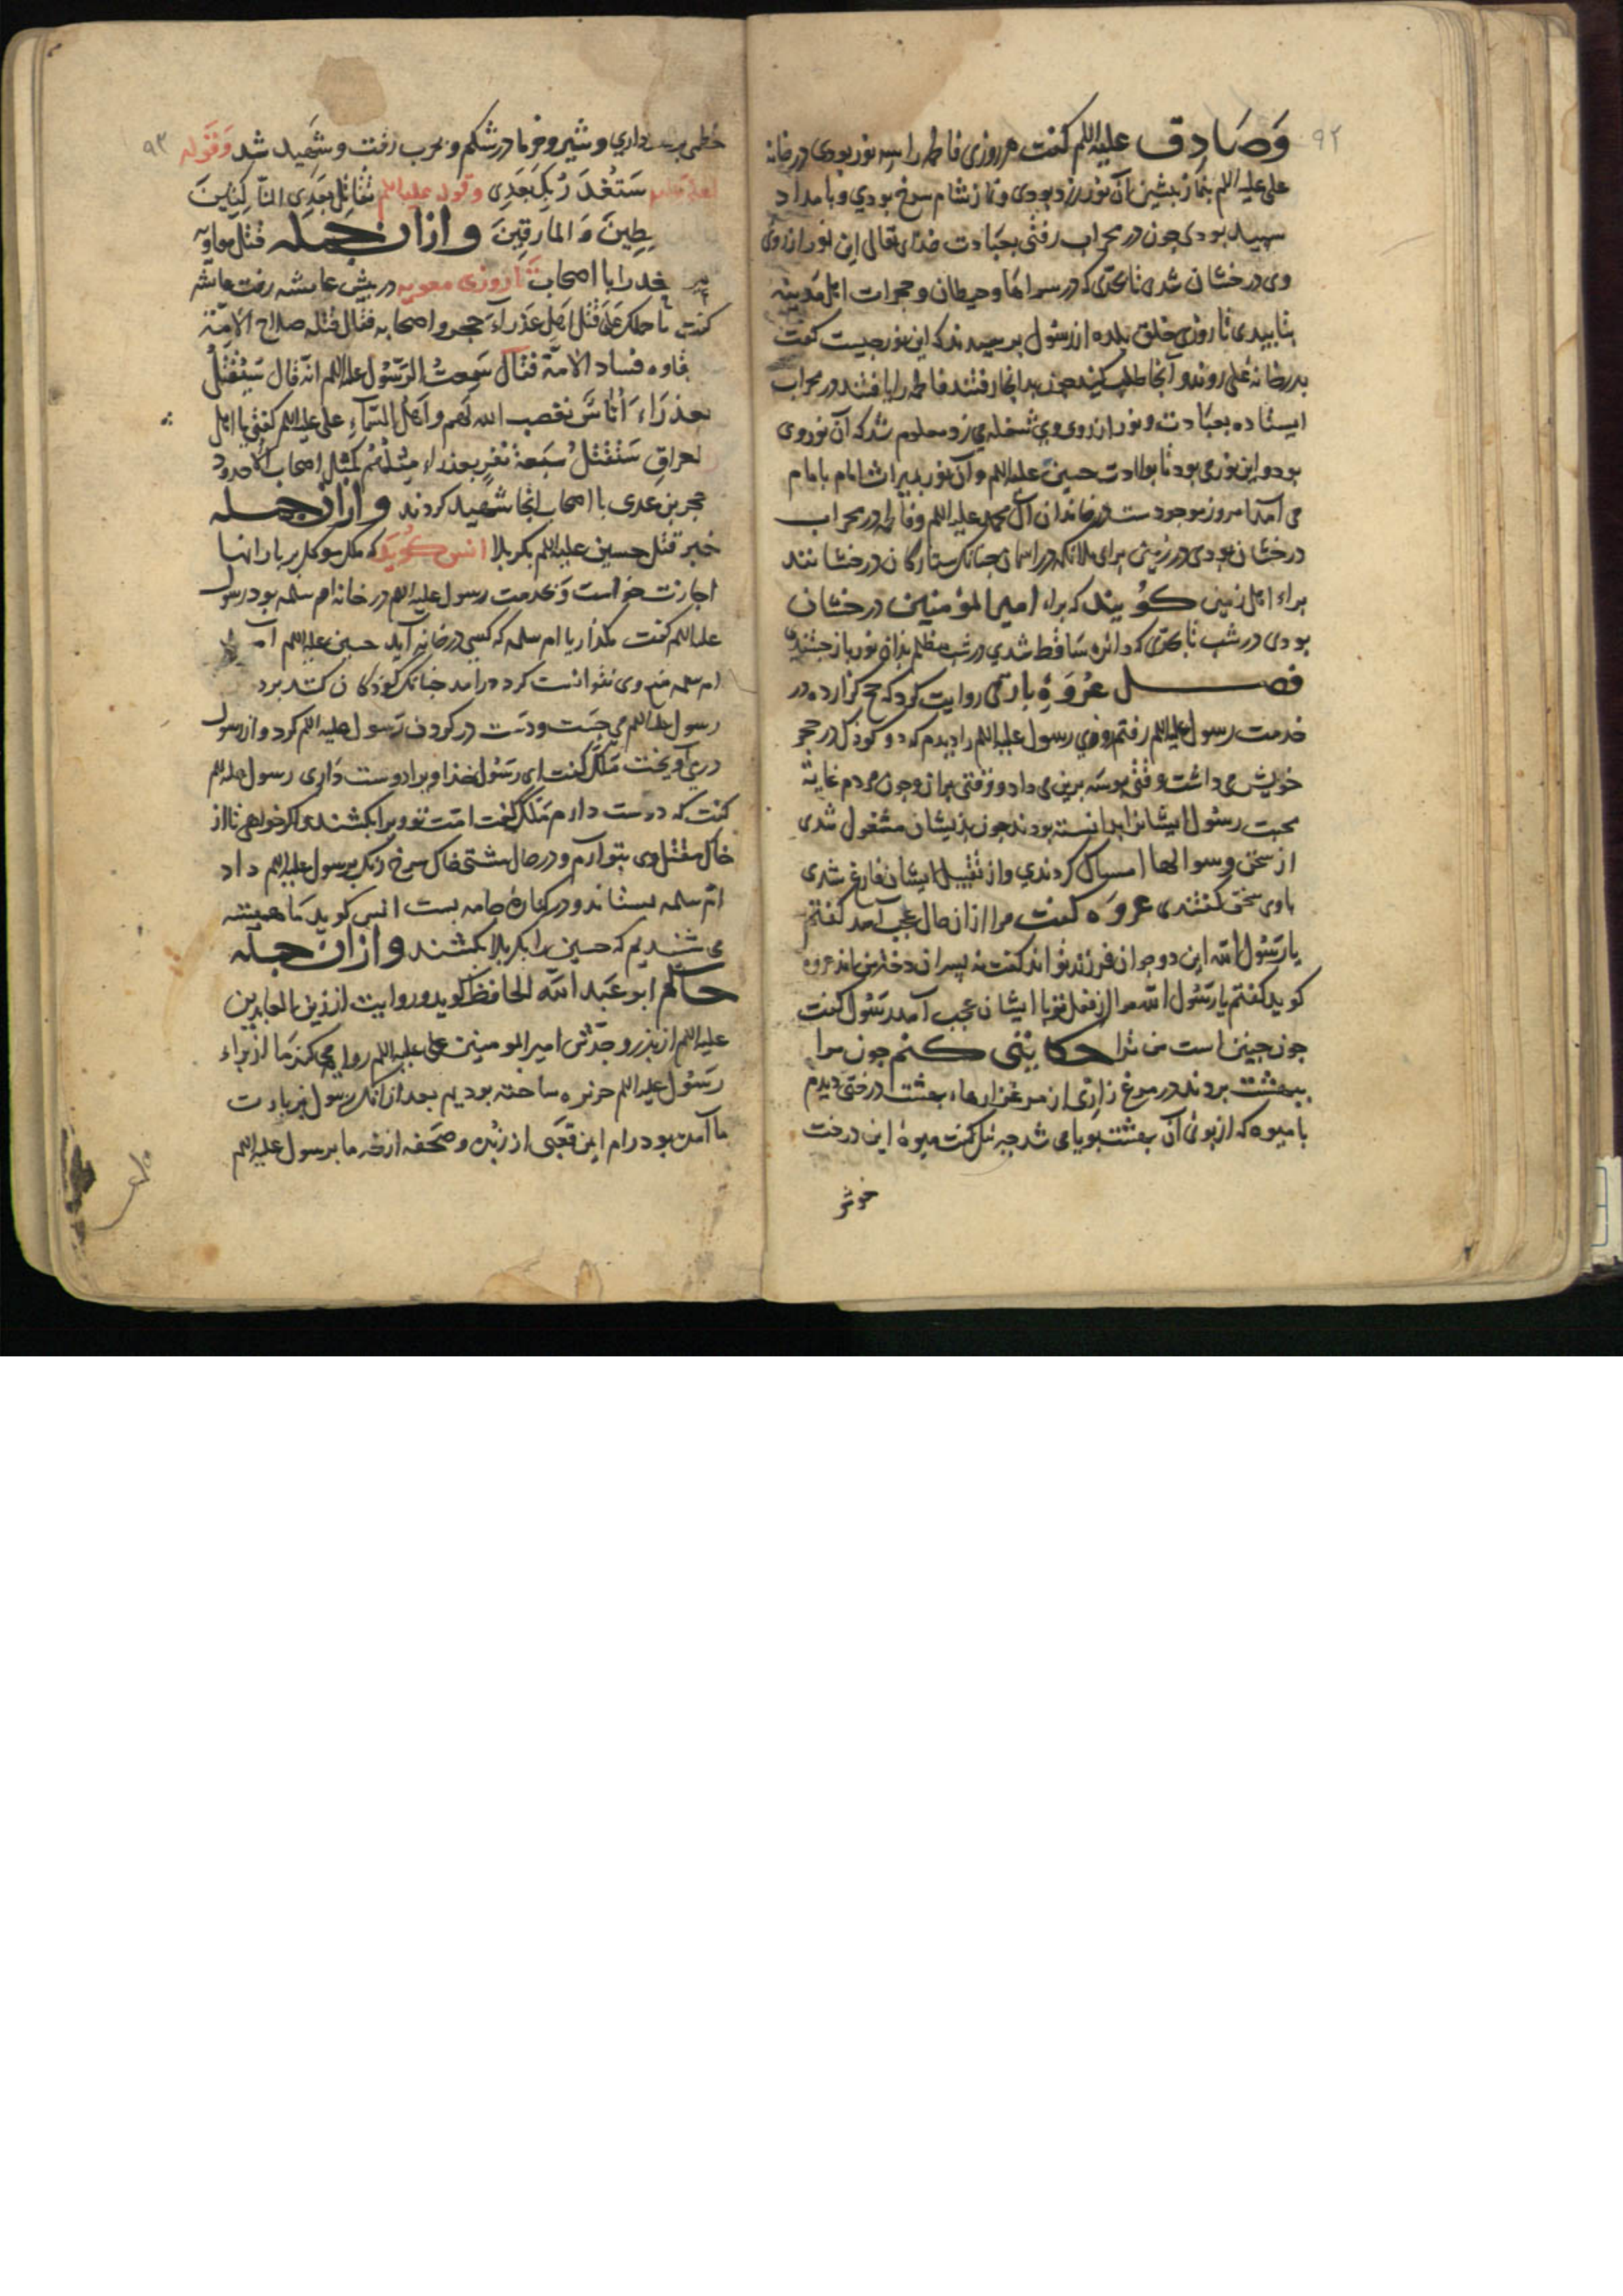 ۹۲
وَصَادِق علیه اللم کفت هر روزی فاطمه را سه نور بودی در خانه
علی علیه اللم بنماز بیشین آن نور زرد بودی و نماز شام سرخ بودی و بامداد
سپید بودی چون در محراب رفتی بعبادت خدای تعالی این نور از روی
وی درخشان شدی تا بحدّی که در سراها و حیطان و حجرات اهل مدینه
بتابیدی تا روزی خلق بلده از رسول برسیدند که این نور جیست کفت
بدر خانهٔ علی روند و آنجا طلب کنند جون بدانجا رفتند فاطمه را یافتند در محراب
ایستاده بعبادت و نور از روی وی شعله می زد معلوم شد که آن نور وی
بود و این نور می بود تا بولادت حسین علیه اللم و آن نور بمیراث امام بامام
می آمد امروز موجودست در خاندان آل محمد علیه اللم و فاطمه در محراب
درخشان بودی در زمین برای ملائکه در آسمان جنانک ستارکان درخشانند
براء اهل زمین کویند که براء امیر المؤمنین درخشان
بودی در شب تا بحدّی که دانه ساقط شدی در شب مظلم بدان نور باز جستندی
فصل عُروَةِ بارقی روایت کرد که حج کزارده در
خدمت رسول علیه اللم رفتم روزی رسول علیه اللم را دیدم که دو کوذک در حجر
خویش می داشت وقتی بوسه برین می داد و وقتی بر آن و جون مردم غایة
محبت رسول ایشانرا بدانسته بودند جون بذیشان مشغول شدی
از سخن و سوالها امساک کردندی و از تقبیل ایشان فارغ شدی
باوی سخن کفتندی عروه کفت مرا از آن حال عجب آمد کفتم
یا رسول الله این دو جوان فرزند تواند کفت نه پسران دختر من اند عروه
کوید کفتم یا رسول الله مرا از فعل تو با ایشان عجب آمد رسول کفت
جون جنین است من ترا حکایتی کنم جون مرا
ببهشت بردند در مرغزاری از مرغزارهاء بهشت درختی دیدم
با میوه که از بوی آن بهشت بویا می شد جبرئیل کفت میوهٔ این درخت
خوشتر
۹۳
داری و شیر و خرما در شکم و بحرب رفت و شهید شد وَقَوله
سَتُغدَرُ بِکَ بَعَدِی وقوله علیه اللم تُقَاتِلُ بَعَدِی النّاکِثِینَ
وَالمَارِقِینَ وازان جمله قتل معاویه
را با اصحاب تا روزی معویه در بیش عایشه رفت عایشه
کفت ما حملک علی قتل اهل عذراءَ حجر و اصحابه فقال قتلهم صلاح الامّة
فساد الامّة فقال سمعت الرسول علیه اللم انّه قال سَیُقتَلُ
بعذراءَ اُناسٌ یغضب الله لهم و اهل السّماءِ علی علیه اللم کفتی یا اهل
العراق سَتُقتَلُ سَبعَةُ نَفَرٍ بعذراء مِثلُهُم کمثل اصحاب الاُخدود
حجر بن عدی با اصحاب انجا شهید کردند وازان جمله
خبر قتل حسین علیه اللم بکربلا انس کوید که ملک موکل بر بارانها
اجازت خواست و بخدمت رسول علیه اللم در خانه ام سلمه بود رسول
علیه اللم کفت مکذار یا ام سلمه که کسی در خانه آید حسین علیه اللم آمد
ام سلمه منع وی نتوانست کرد درآمد جنانک کوذکان کنند برد
رسول علیه اللم می جست و دست در کردن رسول علیه اللم کرد و از رسول
درمی آویخت ملک کفت ای رسول خدا ویرا دوست داری رسول علیه اللم
کفت که دوست دارم ملک کفت امّت تو ویرا بکشند و اکر خواهی تا از
خاک مقتل وی بتو آرم و در حال مشتی خاک سرخ رنک برسول علیه اللم داد
امّ سلمه بستاند و در کنارهٔ جامه بست انس کوید ما همیشه
می شنیدیم که حسین را بکربلا بکشند وازان جمله
حاکم ابو عبد الله الحافظ کوید و روایت از زین العابدین
علیه اللم از بذر و جدّش امیر المومنین علی علیه اللم روایت می کند ما از براء
رسول علیه اللم حزیره ساخته بودیم بعد از آنک رسول بزیارت
ما آمده بود و ام ایمن قعبی از زبد و صحفه از خرما برسول علیه اللم